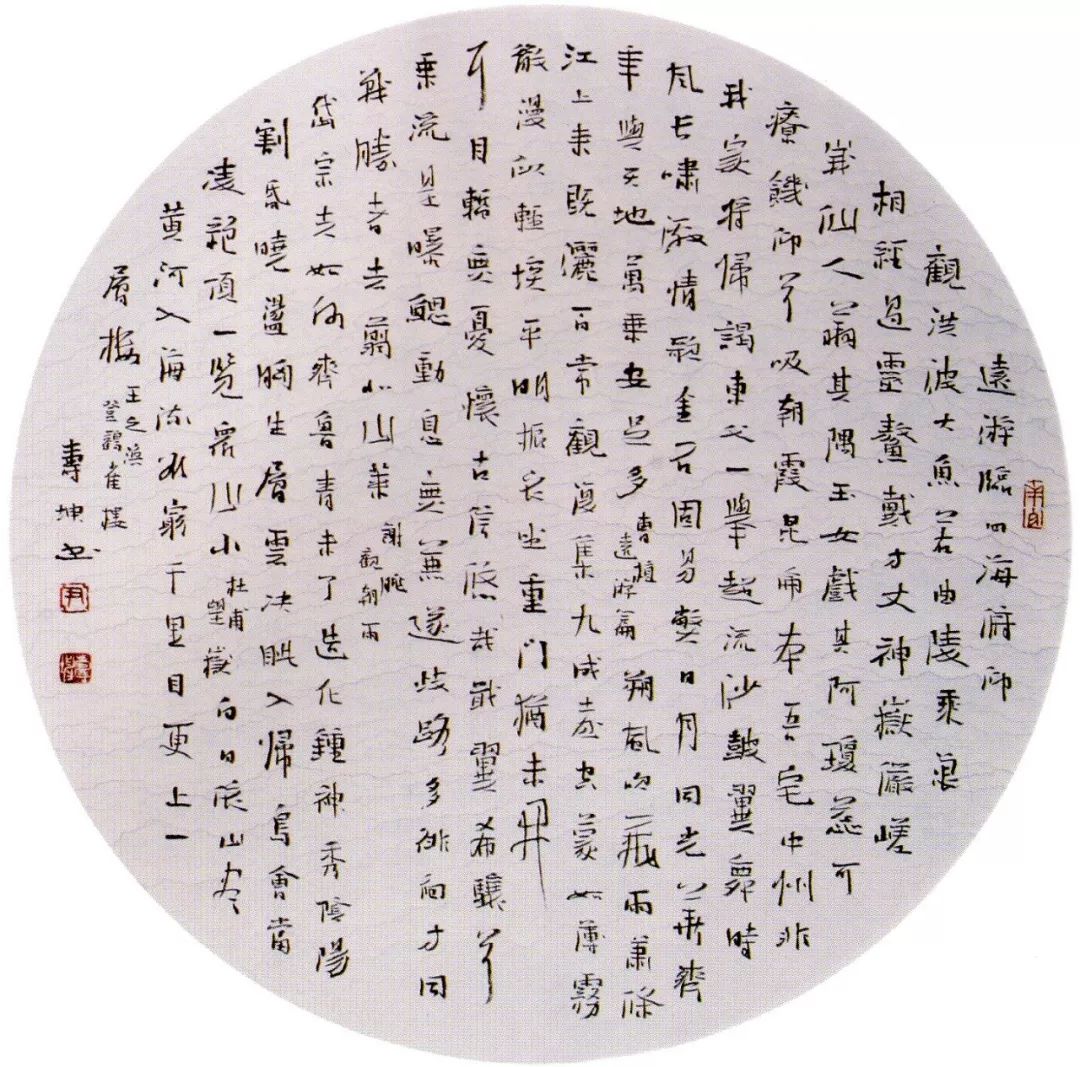 遠游臨四海俯仰
觀洪波大魚若曲陵乘浪
相經過靈鼇戴方丈神嶽儼嵯
峨仙人翔其隅玉女戲其阿瓊蕊可
療饑仰首吸朝霞昆侖本吾宅中州非
我家將歸謁東父一舉超流沙鼓翼舞時
風長嘯激清歌金石固易弊日月同光華齊
年與天地萬乘安足多
曹植
遠游篇
朔風吹飛雨蕭條
江上來既灑百常觀復集九成臺空蒙如薄霧
散漫似輕埃平明振衣坐重門猶未開
耳目暫無憂懷古信悠哉戢翼希驤首
乘流畏曝鰓動息無兼遂歧路多徘徊方同
戰勝者去翦北山萊
謝朓
觀朝雨
岱宗夫如何齊魯青未了造化鐘神秀陰陽
割昏曉盪胸生層雲決眥入歸鳥會當
凌絕頂一覽眾山小
杜甫
望嶽
白日依山盡
黃河入海流欲窮千里目更上一
層樓
王之渙
登鸛雀樓
壽坤書